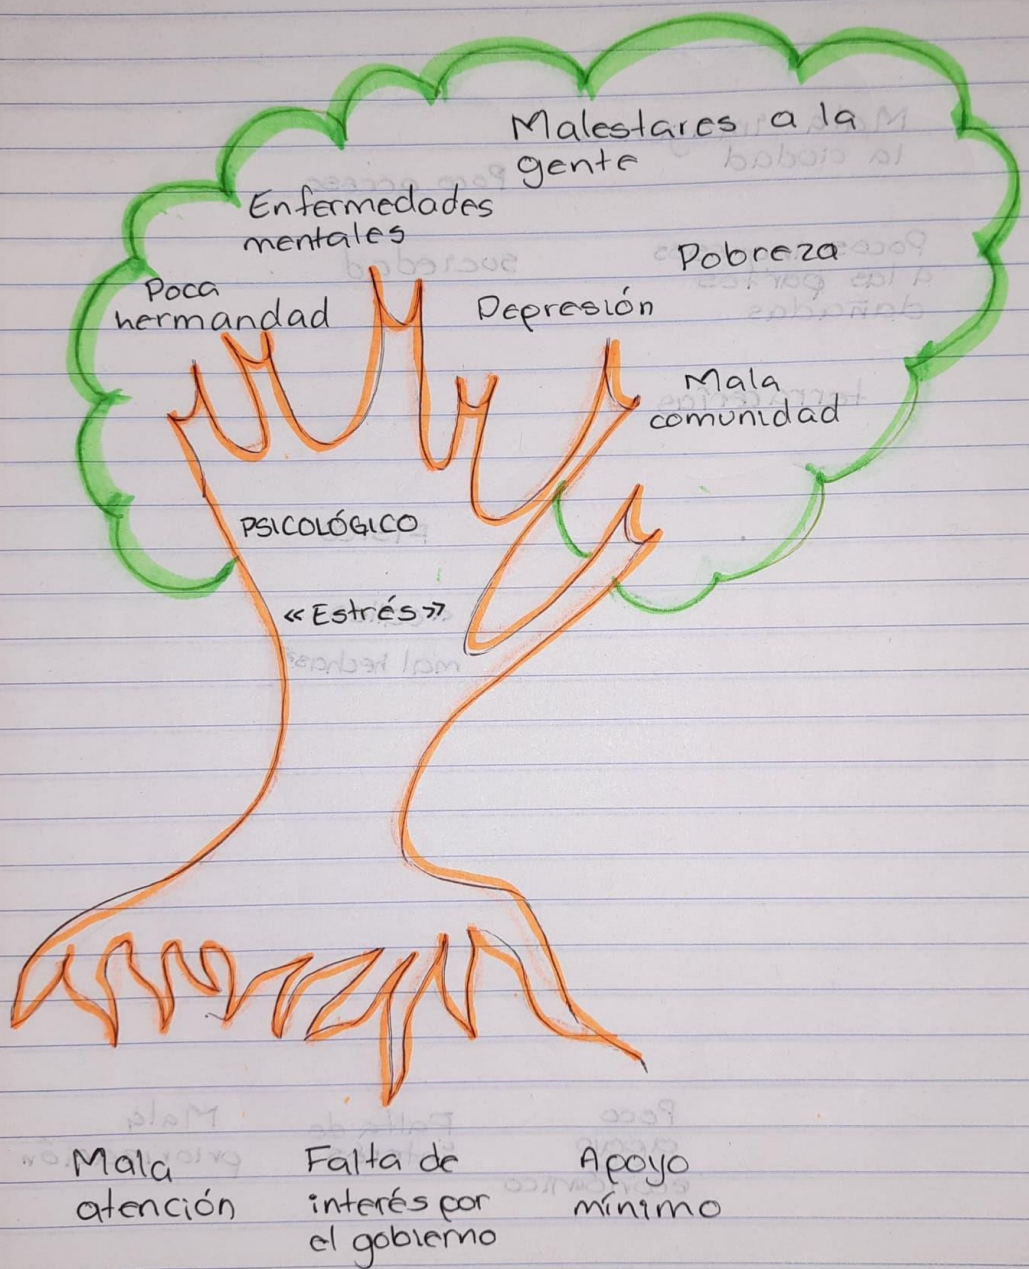 Malestares a la
gente
Enfermedades
mentales
Pobreza
Poca
hermandad
Depresión
Mala
comunidad
PSICOLÓGICO
«Estrés»
Mala
atención
Falta de
interés por
el gobierno
Apoyo
mínimo